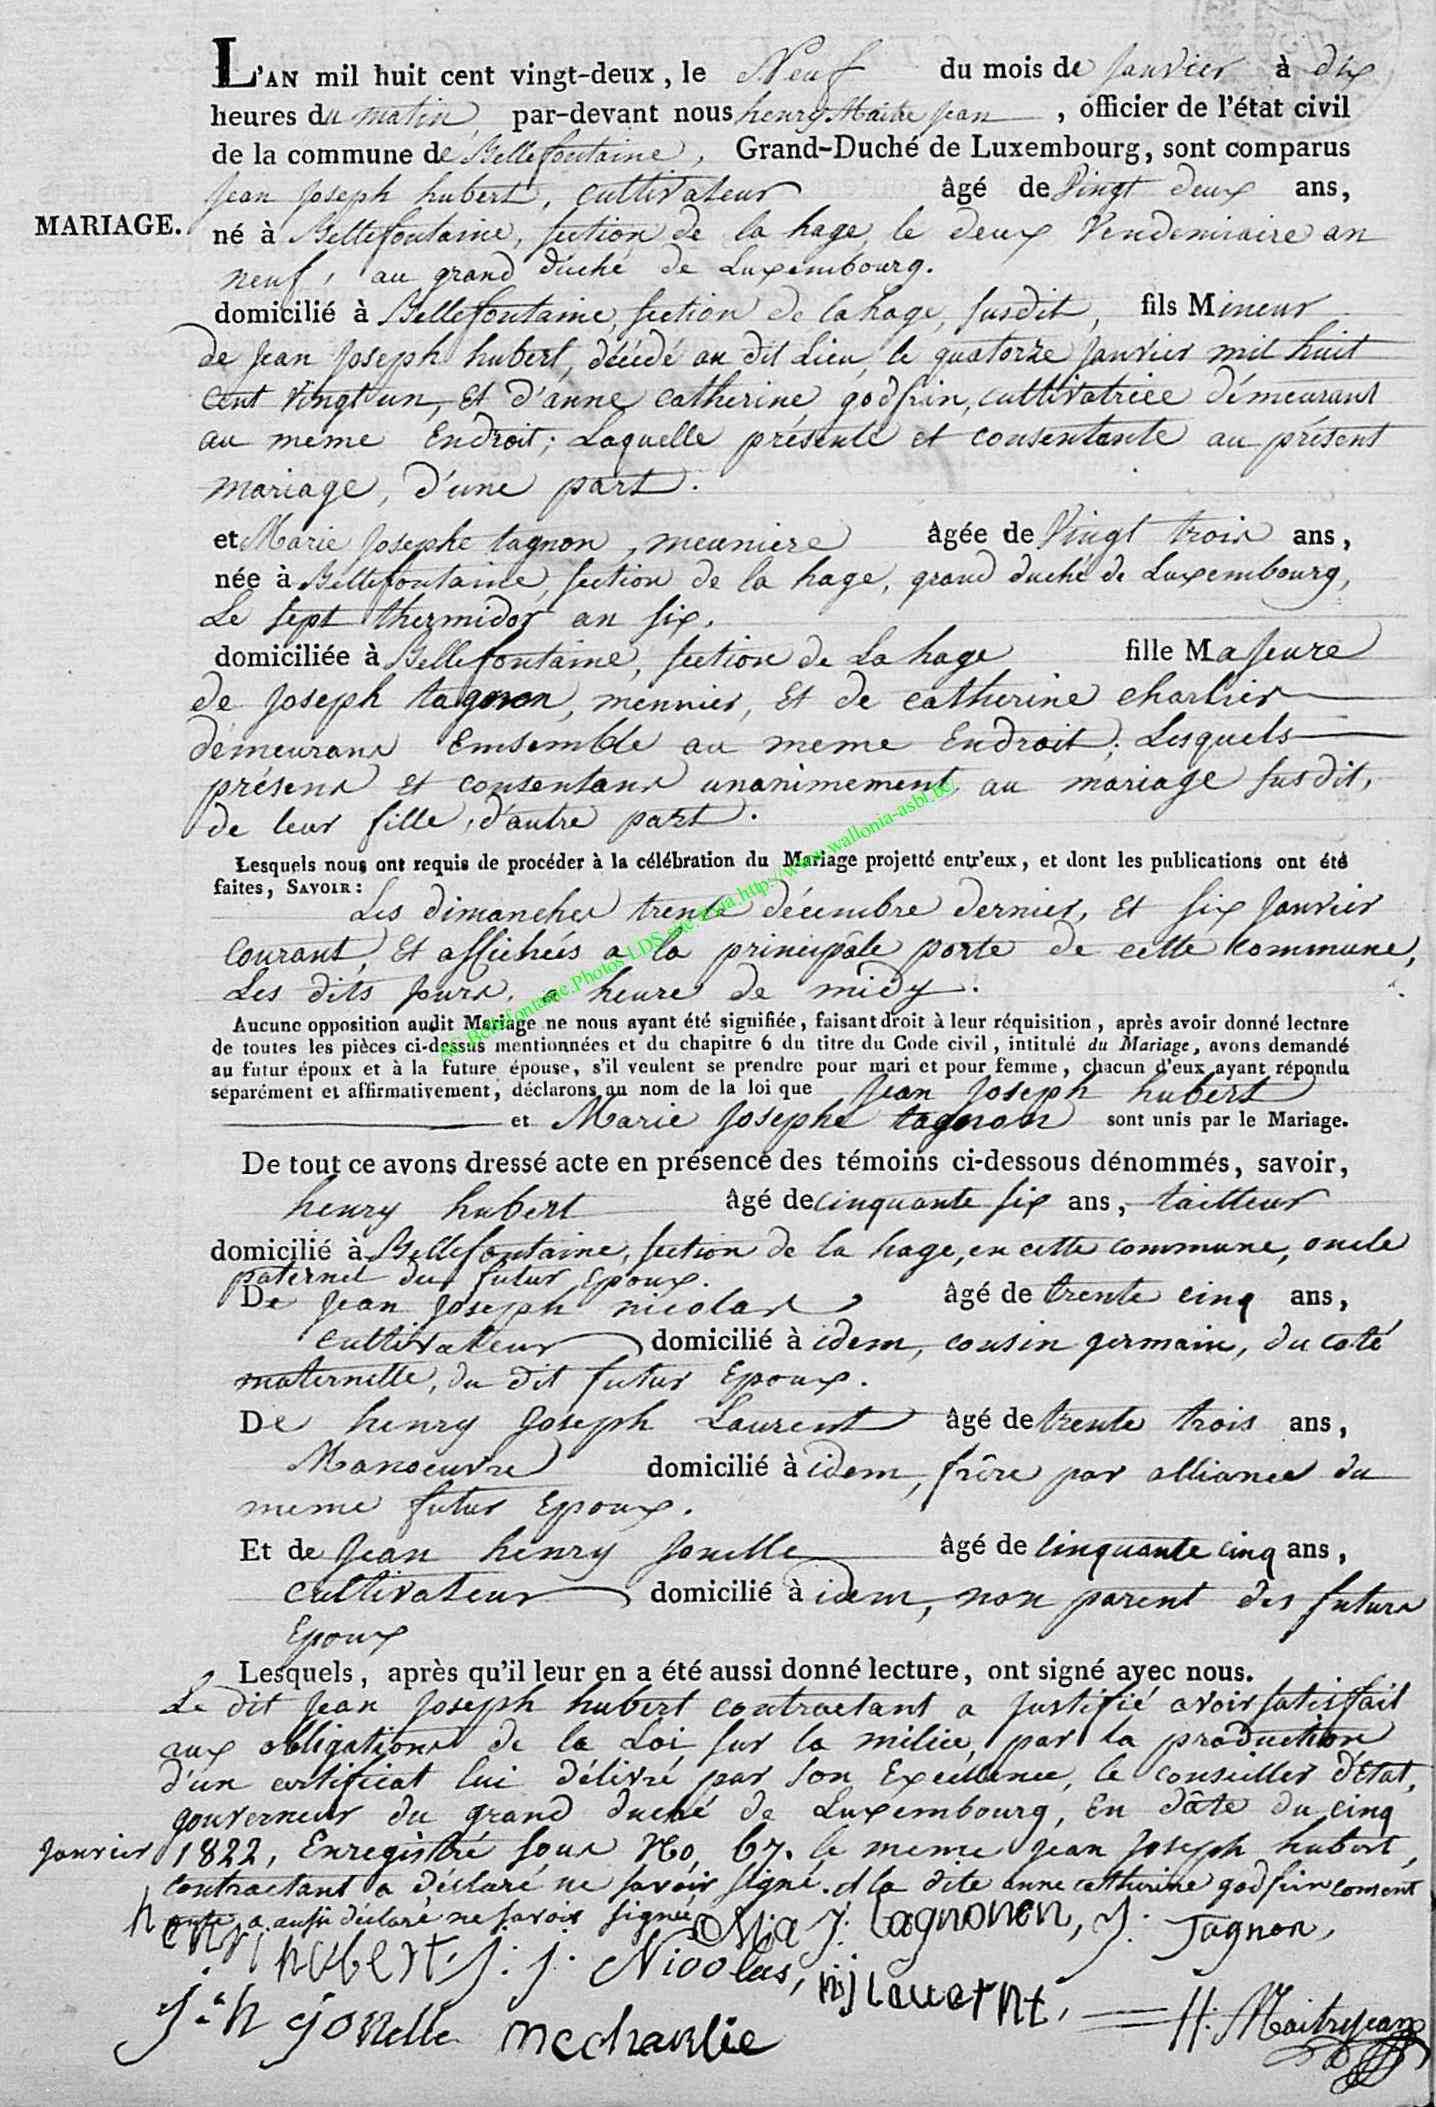 L'AN mil huit cent vingt-deux, le Neuf du mois de Janvier à dix
heures du matin par-devant nous henry Maitre jean, officier de l'état civil
de la commune de Bellefontaine, Grand-Duché de Luxembourg, sont comparus
Jean Joseph hubert, cultivateur âgé de Vingt deux ans,
MARIAGE.
né à Bellefontaine, section de la hage, le deux Vendemiaire an
neuf, au grand duché de Luxembourg.
domicilié à Bellefontaine, section de la hage, susdit, fils Mineur
de Jean Joseph hubert, décédé au dit Lieu, le quatorze Janvier mil huit
cent vingt un, et d'anne catherine godfrin, cultivatrice demeurant
au meme Endroit; Laquelle présente et consentante au présent
mariage, d'une part.
et Marie Josephe tagnon, meuniere âgée de Vingt trois ans,
née à Bellefontaine, section de la hage, grand duché de Luxembourg,
Le sept thermidor an six.
domiciliée à Bellefontaine, section de La hage fille Majeure
de Joseph tagnon, meunier, et de catherine charlier
demeurans Emsemble au meme Endroit; Lesquels
présens et consentans unanimement au mariage susdit,
de leur fille, d'autre part.
Lesquels nous ont requis de procéder à la célébration du Mariage projetté entr'eux, et dont les publications ont été
faites, SAVOIR:
Les dimanches trente décembre dernier, et six Janvier
courant, et affichées a la principâle porte de cette commune,
Les dits jours, a heure de midy.
Aucune opposition audit Mariage ne nous ayant été signifiée, faisant droit à leur réquisition, après avoir donné lecture
de toutes les pièces ci-dessus mentionnées et du chapitre 6 du titre du Code civil, intitulé du Mariage, avons demandé
au futur époux et à la future épouse, s'il veulent se prendre pour mari et pour femme, chacun d'eux ayant répondu
séparément et affirmativement, déclarons au nom de la loi que Jean Joseph hubert
et Marie Josephe tagnon sont unis par le Mariage.
De tout ce avons dressé acte en présence des témoins ci-dessous dénommés, savoir,
henry hubert âgé de cinquante six ans, tailleur
domicilié à Bellefontaine, section de la hage, en cette commune, oncle
paternel du futur Epoux.
De Jean Joseph nicolas, âgé de trente cinq ans,
cultivateur domicilié à idem, cousin germain, du coté
maternelle, du dit futur Epoux.
De henry Joseph Laurent âgé de trente trois ans,
Manoeuvre domicilié à idem, frère par alliance du
meme futur Epoux.
Et de Jean henry Jonelle âgé de cinquante cinq ans,
cultivateur domicilié à idem, non parent des futurs
Epoux
Lesquels, après qu'il leur en a été aussi donné lecture, ont signé avec nous.
Le dit Jean Joseph hubert contractant a justifié avoir satisfait
aux obligations de la Loi sur la milice, par la production
d'un certificat lui délivré par son Excellence, le conseiller d'Etat,
gouverneur du grand duché de Luxembourg, en dâte du cinq
Janvier 1822, Enregistré sous No. 67. le meme Jean Joseph hubert,
contractant a déclaré ne savoir signé. et la dite anne catherine godfrin consent
ante a aussi déclaré ne savoir signé.
Mia J. Lagnonen, J. Tagnon,
henri hubert. J. J. Nicolas, hj Lauernt,
J. h Jonelle mccharlie H. Maitrejean
AC Bellefontaine.Photos LDS site: Luxa http://www.wallonia-asbl.be/